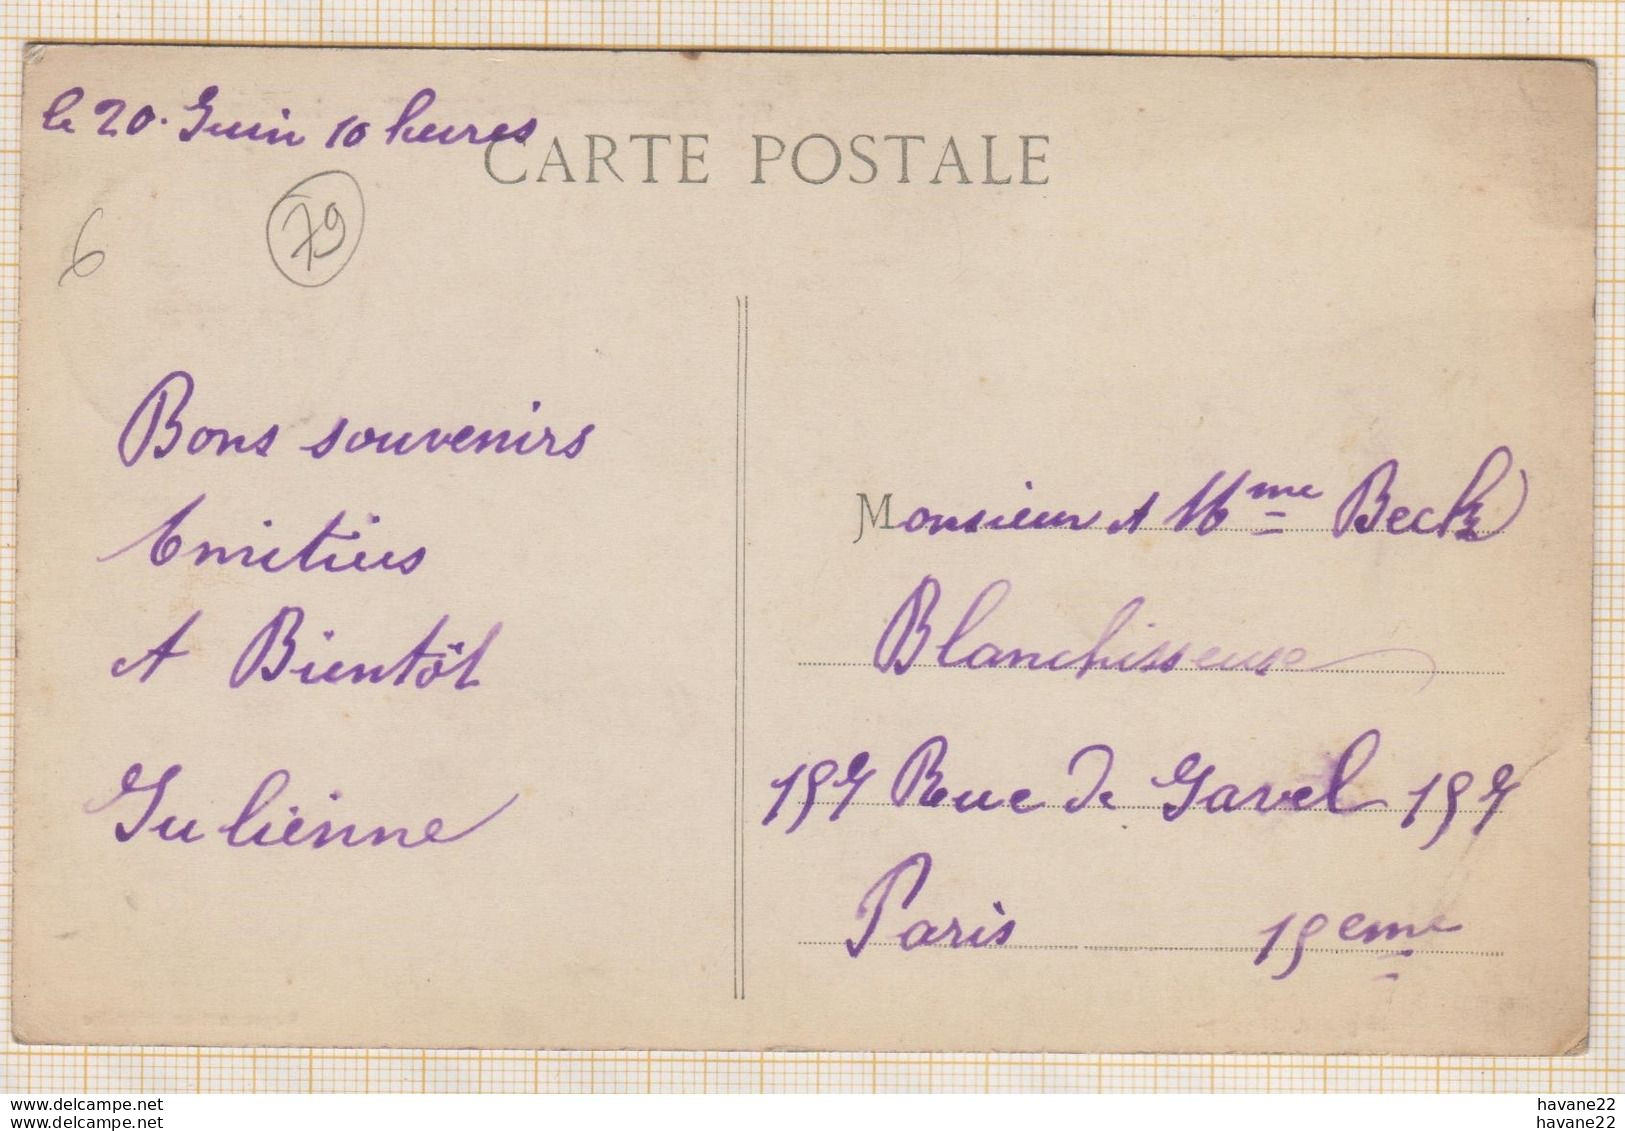 le 20. Juin 10 heures
CARTE POSTALE
6
79
Bons souvenirs
Amitiés
A Bientôt
Julienne
Monsieur et Mme Beck
Blanchisseuse
157 Rue de Javel 157
Paris 15eme
havane22
havane22
havane22
havane22